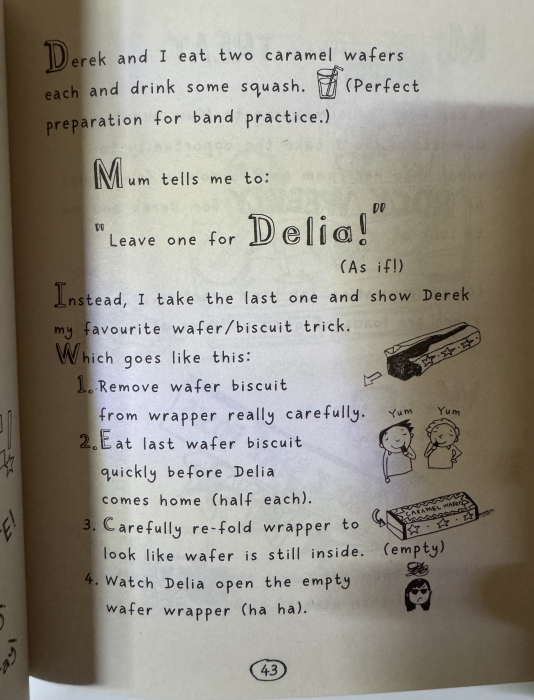 Derek and I eat two caramel wafers
each and drink some squash. (Perfect
preparation for band practice.)
Mum tells me to:
"Leave one for Delia!"
(As if!)
Instead, I take the last one and show Derek
my favourite wafer/biscuit trick.
Which goes like this:
1. Remove wafer biscuit
from wrapper really carefully.
Yum Yum
2. Eat last wafer biscuit
quickly before Delia
comes home (half each).
3. Carefully re-fold wrapper to
CARAMEL WAFER
look like wafer is still inside. (empty)
4. Watch Delia open the empty
wafer wrapper (ha ha).
43